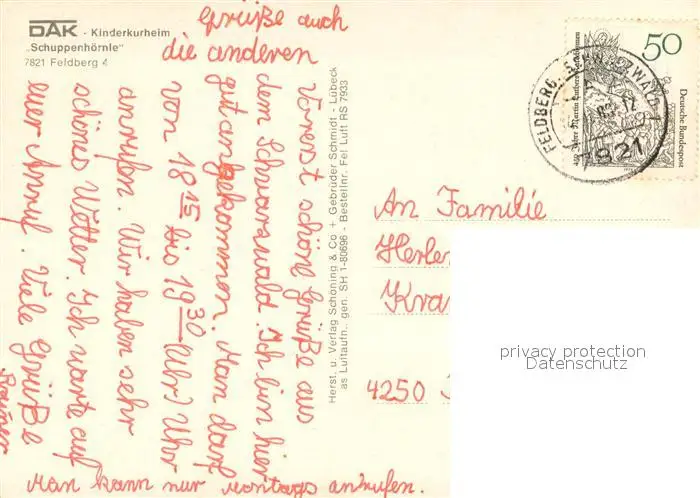 DAK - Kinderkurheim
"Schuppenhörnle"
7821 Feldberg 4
Grüße auch
die anderen
Vorerst schöne Grüße aus
dem Schwarzwald. Ich bin hier
gut angekommen. Man darf
von 18 15 bis 19 30 (Uhr) Uhr
anrufen. Wir haben sehr
schönes Wetter. Ich warte auf
euer Anruf. Viele Grüße
Rainer
Man kann nur Montags anrufen.
Herst. u. Verlag Schöning & Co + Gebrüder Schmidt - Lübeck
as Luftaufn., gen. SH 1-80696 - Bestellnr. Fel Luft RS 7933
50
Deutsche Bundespost
FELDBERG
7821
An Familie
Herle
Kra
4250
privacy protection
Datenschutz